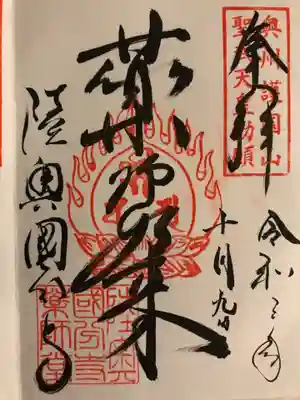 奥州護國山
聖武天皇勅願
奉拝
令和三年
十月九日
薬師如来
陸奥國分寺
陸奥
國分寺
薬師堂